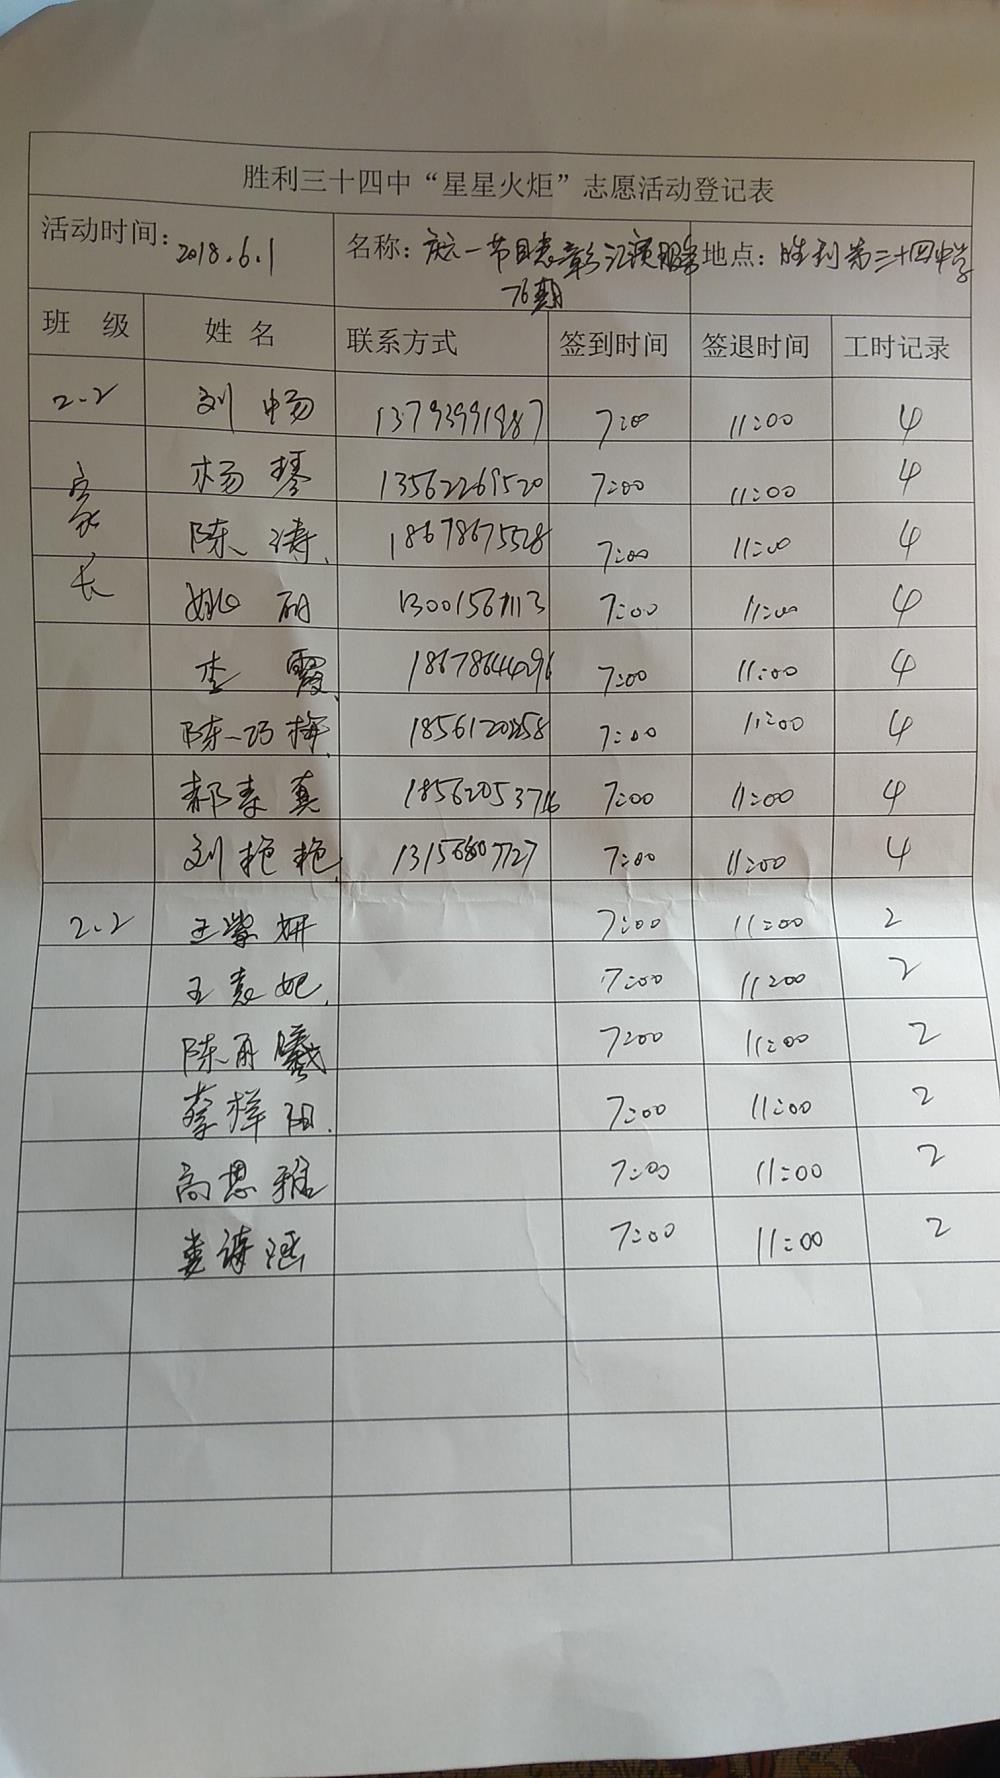 胜利三十四中“星星火炬”志愿活动登记表
活动时间：2018.6.1 名称：庆六一节目表彰汇演服务 地点：胜利第三十四中学
76期
班 级 姓 名 联系方式 签到时间 签退时间 工时记录
2.2 刘畅 13793991987 7:00 11:00 4
家 杨琴 13562269520 7:00 11:00 4
陈涛 18678675528 7:00 11:00 4
长 姚丽 13001567113 7:00 11:00 4
李霞 18678644296 7:00 11:00 4
陈巧梅 7:00 11:00 4
郝素真 18562053716 7:00 11:00 4
刘艳艳 7:00 11:00 4
2.2 王紫妍 7:00 11:00 2
王 7:00 11:00 2
陈雨曦 7:00 11:00 2
李梓阳 7:00 11:00 2
高思雅 7:00 11:00 2
娄诗涵 7:00 11:00 2